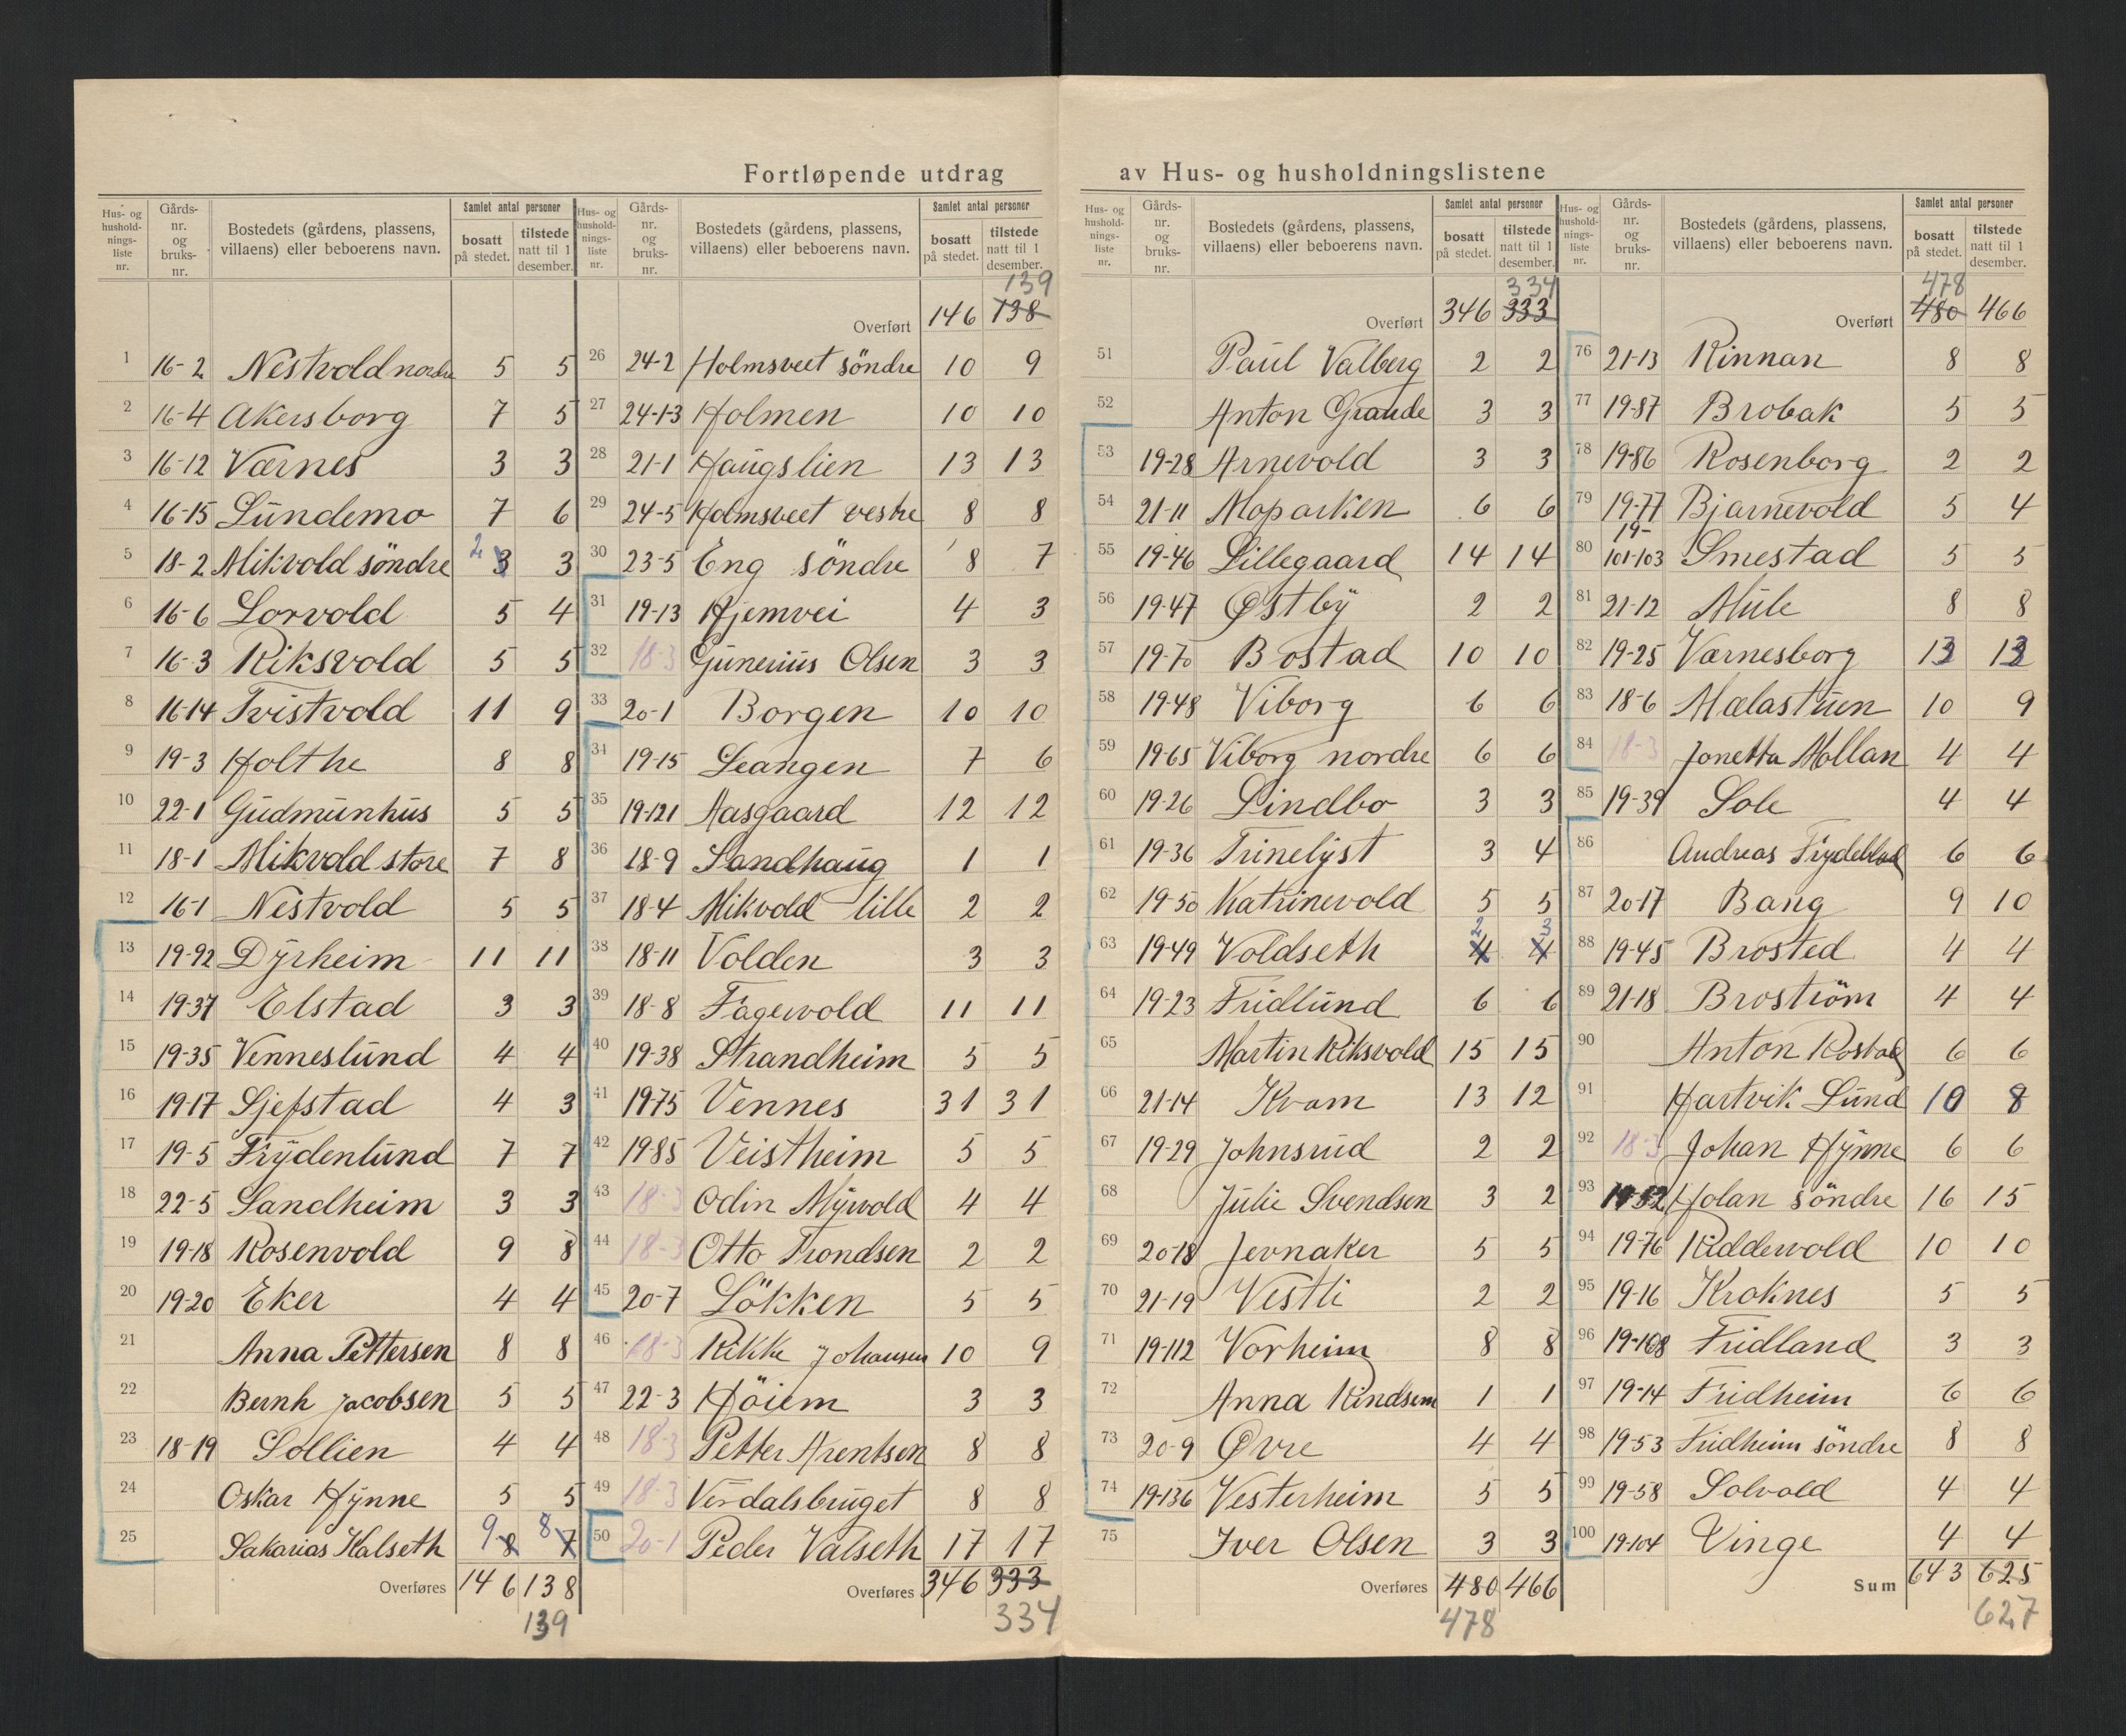 Fortløpende utdrag av Hus- og husholdningslistene
Hus- og hushold-nings-liste nr. Gårds-nr. og bruks-nr. Bostedets (gårdens, plassens, villaens) eller beboerens navn. Samlet antal personer bosatt på stedet. tilstede natt til 1 desember.
1 16-2 Nestvold nordre 5 5
2 16-4 Akersborg 7 5
3 16-12 Værnes 3 3
4 16-15 Lundemo 7 6
5 18-2 Mikvold söndre 2 3 3
6 16-6 Lorvold 5 4
7 16-3 Riksvold 5 5
8 16-14 Tvistvold 11 9
9 19-3 Holthe 8 8
10 22-1 Gudmunhus 5 5
11 18-1 Mikvold store 7 8
12 16-1 Nestvold 5 5
13 19-92 Dyrheim 11 11
14 19-37 Elstad 3 3
15 19-35 Venneslund 4 4
16 19-17 Sjefstad 4 3
17 19-5 Frydenlund 7 7
18 22-5 Sandheim 3 3
19 19-18 Rosenvold 9 8
20 19-20 Eker 4 4
21 Anna Pettersen 8 8
22 Bernh Jacobsen 5 5
23 18-19 Sollien 4 4
24 Oskar Hynne 5 5
25 Sakarias Halseth 9 8 8 7
Overføres 146 138
139
Hus- og hushold-nings-liste nr. Gårds-nr. og bruks-nr. Bostedets (gårdens, plassens, villaens) eller beboerens navn. Samlet antal personer bosatt på stedet. tilstede natt til 1 desember.
139
Overført 146 138
26 24-2 Holmsveet söndre 10 9
27 24-1-3 Holmen 10 10
28 21-1 Haugslien 13 13
29 24-5 Holmsveet vestre 8 8
30 23-5 Eng söndre 8 7
31 19-13 Hjemvei 4 3
32 18-3 Gunerius Olsen 3 3
33 20-1 Borgen 10 10
34 19-15 Leangen 7 6
35 19-121 Aasgaard 12 12
36 18-9 Sandhaug 1 1
37 18-4 Mikvold lille 2 2
38 18-11 Volden 3 3
39 18-8 Fagervold 11 11
40 19-38 Strandheim 5 5
41 19-75 Vennes 31 31
42 19-85 Veistheim 5 5
43 18-3 Odin Myrvold 4 4
44 18-3 Otto Trondsen 2 2
45 20-7 Lökken 5 5
46 18-3 Rikke Johansen 10 9
47 22-3 Höiem 3 3
48 18-3 Petter Arentsen 8 8
49 18-3 Verdalsbruget 8 8
50 20-1 Peder Valseth 17 17
Overføres 346 333
334
Hus- og hushold-nings-liste nr. Gårds-nr. og bruks-nr. Bostedets (gårdens, plassens, villaens) eller beboerens navn. Samlet antal personer bosatt på stedet. tilstede natt til 1 desember.
334
Overført 346 333
51 Paul Valberg 2 2
52 Anton Grande 3 3
53 19-28 Arnevold 3 3
54 21-11 Moparken 6 6
55 19-46 Lillegaard 14 14
56 19-47 Østby 2 2
57 19-70 Bostad 10 10
58 19-48 Viborg 6 6
59 19-65 Viborg nordre 6 6
60 19-26 Lindbo 3 3
61 19-36 Trinelyst 3 4
62 19-50 Katrinevold 5 5
63 19-49 Voldseth 2 4 3 4
64 19-23 Fridlund 6 6
65 Martin Riksvold 15 15
66 21-14 Kvam 13 12
67 19-29 Johnsrud 2 2
68 Julie Svendsen 3 2
69 20-18 Jevnaker 5 5
70 21-19 Vestli 2 2
71 19-112 Vorheim 8 8
72 Anna Kindsem 1 1
73 20-9 Øvre 4 4
74 19-136 Vesterheim 5 5
75 Iver Olsen 3 3
Overføres 480 466
478
Hus- og hushold-nings-liste nr. Gårds-nr. og bruks-nr. Bostedets (gårdens, plassens, villaens) eller beboerens navn. Samlet antal personer bosatt på stedet. tilstede natt til 1 desember.
478
Overført 480 466
76 21-13 Rinnan 8 8
77 19-87 Brobak 5 5
78 19-86 Rosenborg 2 2
79 19-77 Bjarnevold 5 4
80 19-101-103 Smestad 5 5
81 21-12 Mule 8 8
82 19-25 Værnesborg 13 13
83 18-6 Mælastuen 10 9
84 18-3 Jonetta Mollan 4 4
85 19-39 Sole 4 4
86 Andreas 6 6
87 20-17 Bang 9 10
88 19-45 Brosted 4 4
89 21-18 Broström 4 4
90 Anton Rostad 6 6
91 Hartvik Lund 10 8
92 18-3 Johan Hynne 6 6
93 19-52 Holan söndre 16 15
94 19-76 Riddervold 10 10
95 19-16 Kroknes 5 5
96 19-108 Fridland 3 3
97 19-14 Fridheim 6 6
98 19-53 Fridheim söndre 8 8
99 19-58 Solvold 4 4
100 19-104 Vinge 4 4
Sum 643 625
627